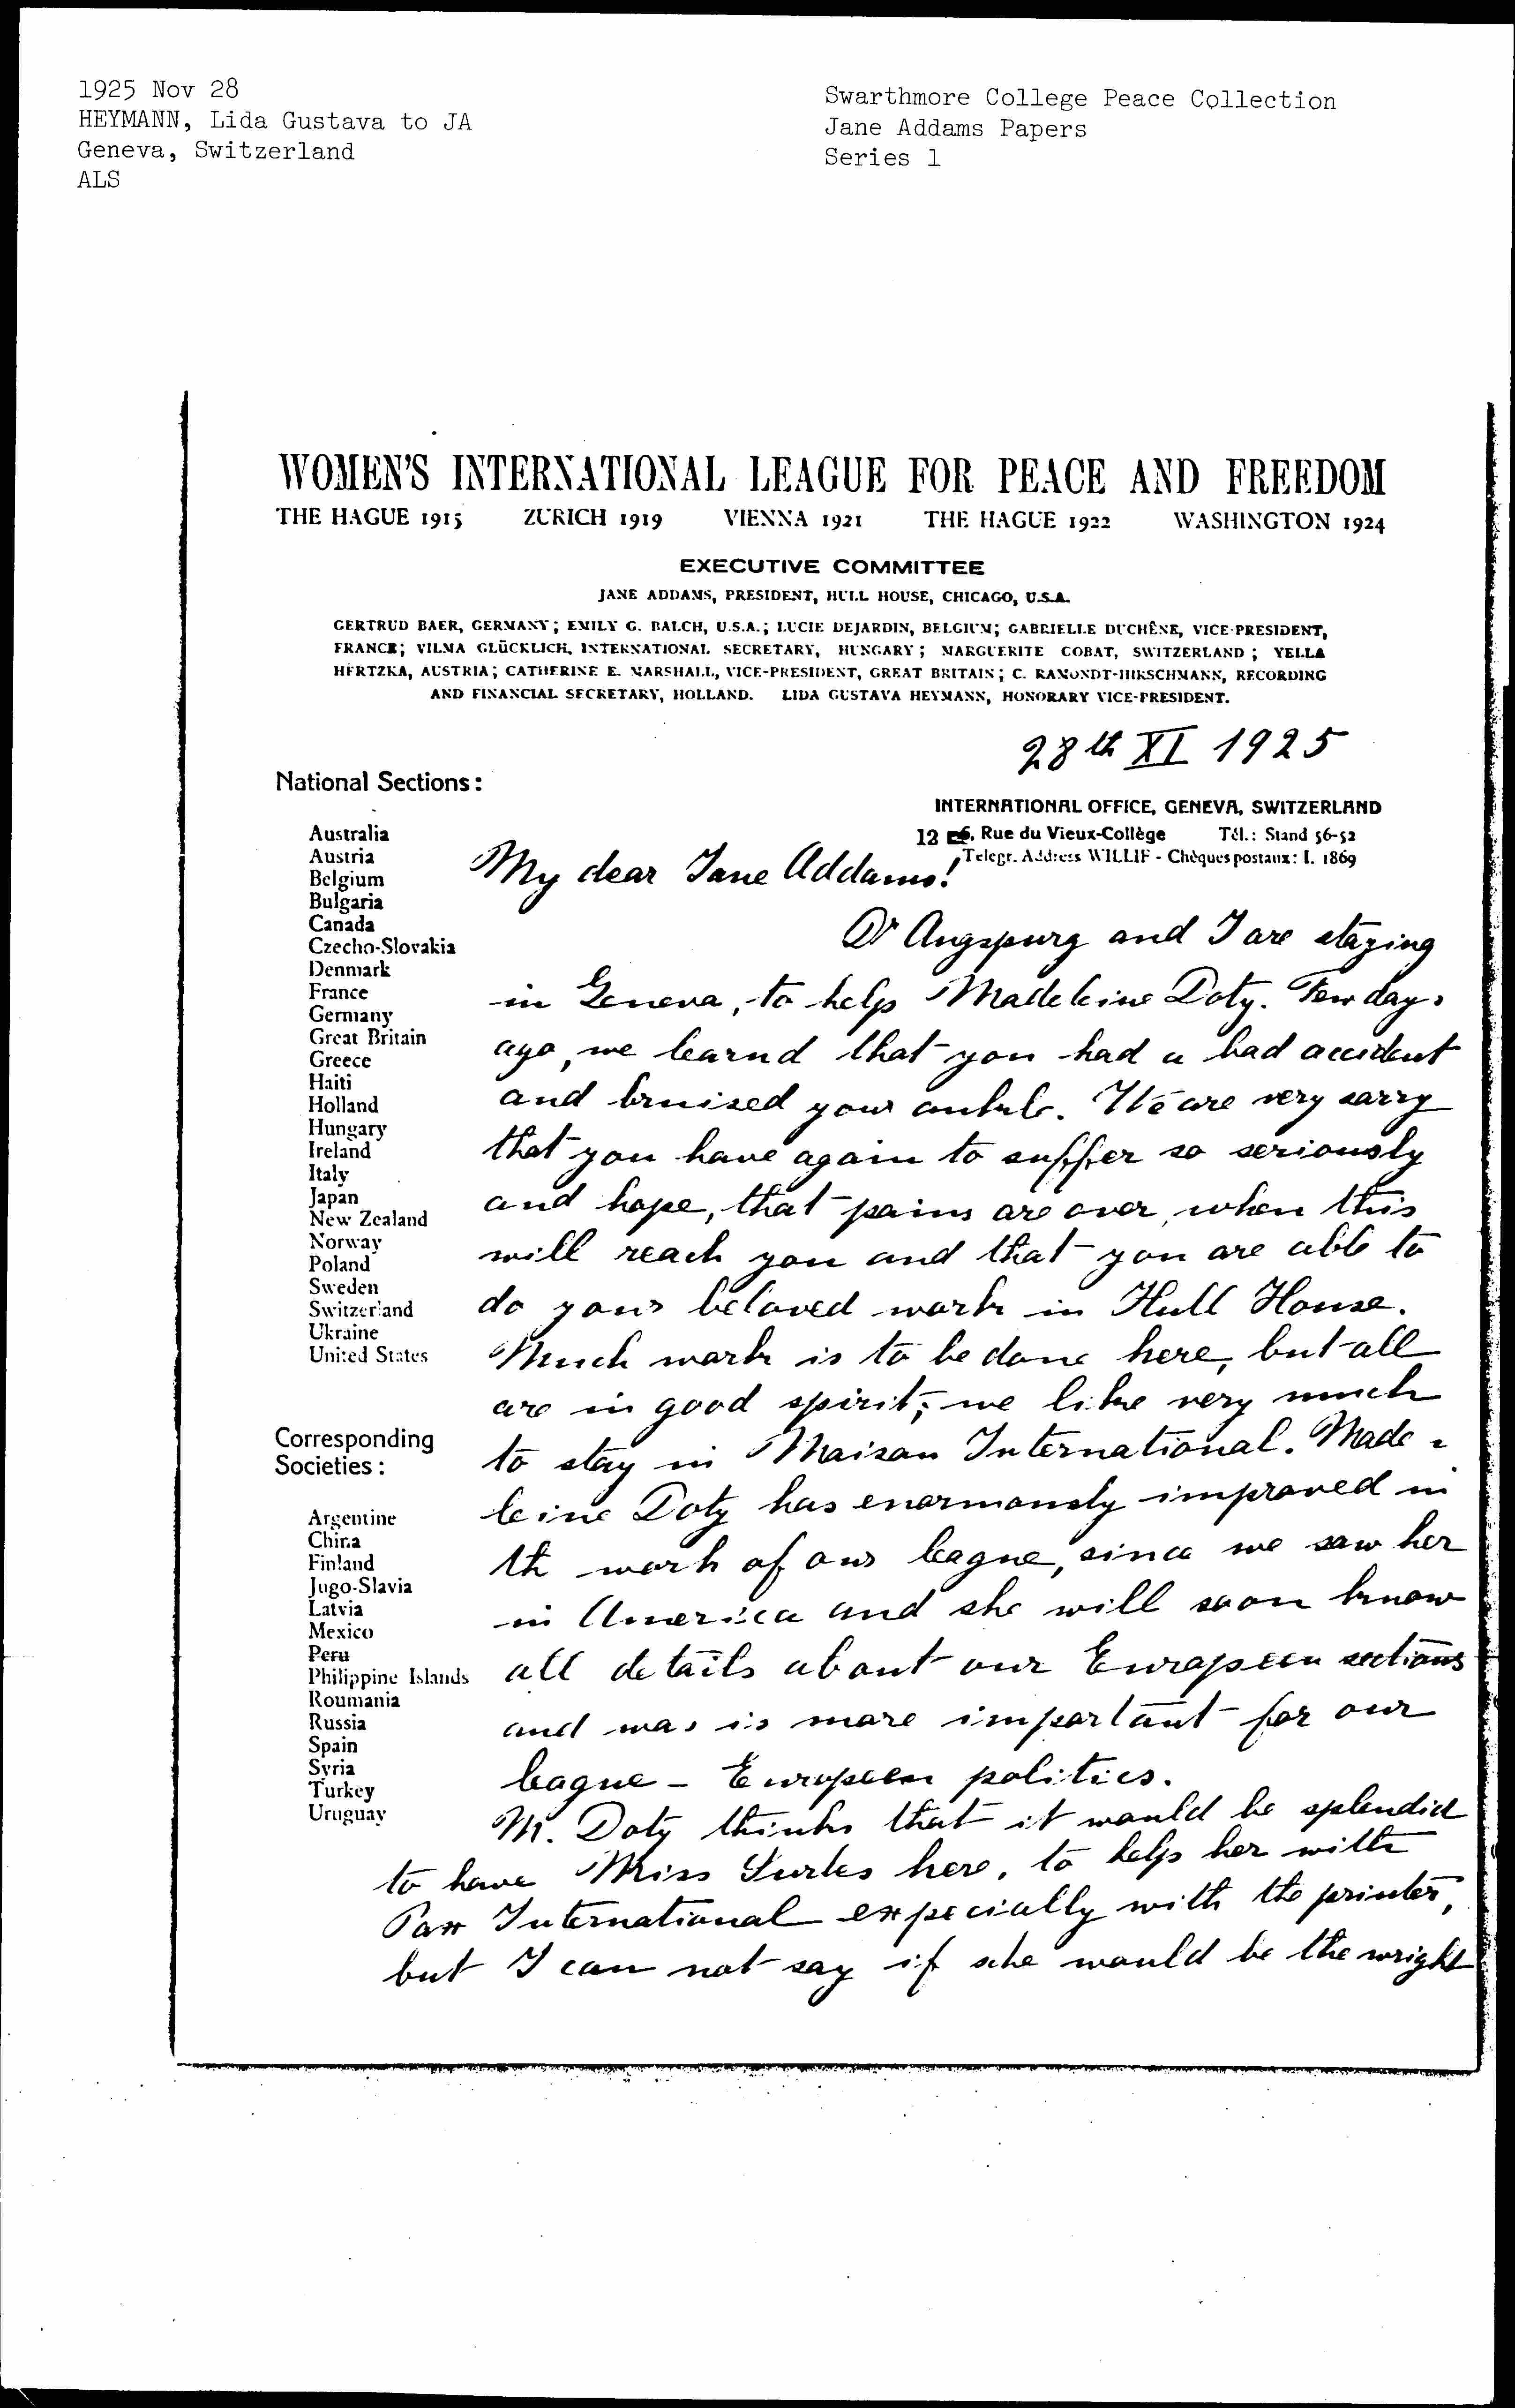 1925 Nov 28
HEYMANN, Lida Gustava to JA
Geneva, Switzerland
ALS
Swarthmore College Peace Collection
Jane Addams Papers
Series 1
WOMEN'S INTERNATIONAL LEAGUE FOR PEACE AND FREEDOM
THE HAGUE 1915 ZURICH 1919 VIENNA 1921 THE HAGUE 1922 WASHINGTON 1924
EXECUTIVE COMMITTEE
JANE ADDAMS, PRESIDENT, HULL HOUSE, CHICAGO, U.S.A.
GERTRUD BAER, GERMANY; EMILY G. BALCH, U.S.A.; LUCIE DEJARDIN, BELGIUM; GABRIELLE DUCHÊNE, VICE-PRESIDENT,
FRANCE; VILMA GLÜCKLICH, INTERNATIONAL SECRETARY, HUNGARY; MARGUERITE GOBAT, SWITZERLAND; YELLA
HERTZKA, AUSTRIA; CATHERINE E. MARSHALL, VICE-PRESIDENT, GREAT BRITAIN; C. RAMONDT-HIRSCHMANN, RECORDING
AND FINANCIAL SECRETARY, HOLLAND. LIDA GUSTAVA HEYMANN, HONORARY VICE-PRESIDENT.
28th XI 1925
INTERNATIONAL OFFICE, GENEVA, SWITZERLAND
12 Rue du Vieux-Collège Tél.: Stand 56-52
Telegr. Address WILLIF - Chèques postaux: I. 1869
National Sections:
Australia
Austria
Belgium
Bulgaria
Canada
Czecho-Slovakia
Denmark
France
Germany
Great Britain
Greece
Haiti
Holland
Hungary
Ireland
Italy
Japan
New Zealand
Norway
Poland
Sweden
Switzerland
Ukraine
United States
Corresponding
Societies:
Argentine
China
Finland
Jugo-Slavia
Latvia
Mexico
Peru
Philippine Islands
Roumania
Russia
Spain
Syria
Turkey
Uruguay
My dear Jane Addams!
Dr Augspurg and I are staying
in Geneva, to help Madeleine Doty. Few days
ago, we learnd that you had a bad accident
and bruised your ankle. We are very sorry
that you have again to suffer so seriously
and hope, that pains are over, when this
will reach you and that you are able to
do your beloved work in Hull House.
Much work is to be done here, but all
are in good spirit; we like very much
to stay in Maison International. Made=
leine Doty has enormously improved in
th work of our league, since we saw her
in America and she will soon know
all details about our European sections
and was is more important for our
league – European politics.
M. Doty thinks that it would be splendid
to have Miss here, to help her with
Pax International expecially with the printer,
but I can not say if she would be the wright